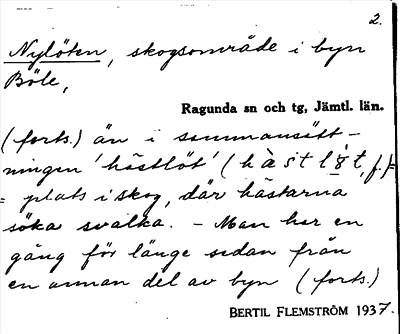 2.
Nylöten, skogsområde i byn
Böle,
Ragunda sn och tg, Jämtl. län.
(forts.) än i sammansätt-
ningen 'hästlöt' (hàstlö̀t, f.)=
= plats i skog, där hästarna
söka svalka. – Man har en
gång för länge sedan från
en annan del av byn (forts.)
BERTIL FLEMSTRÖM 1937.